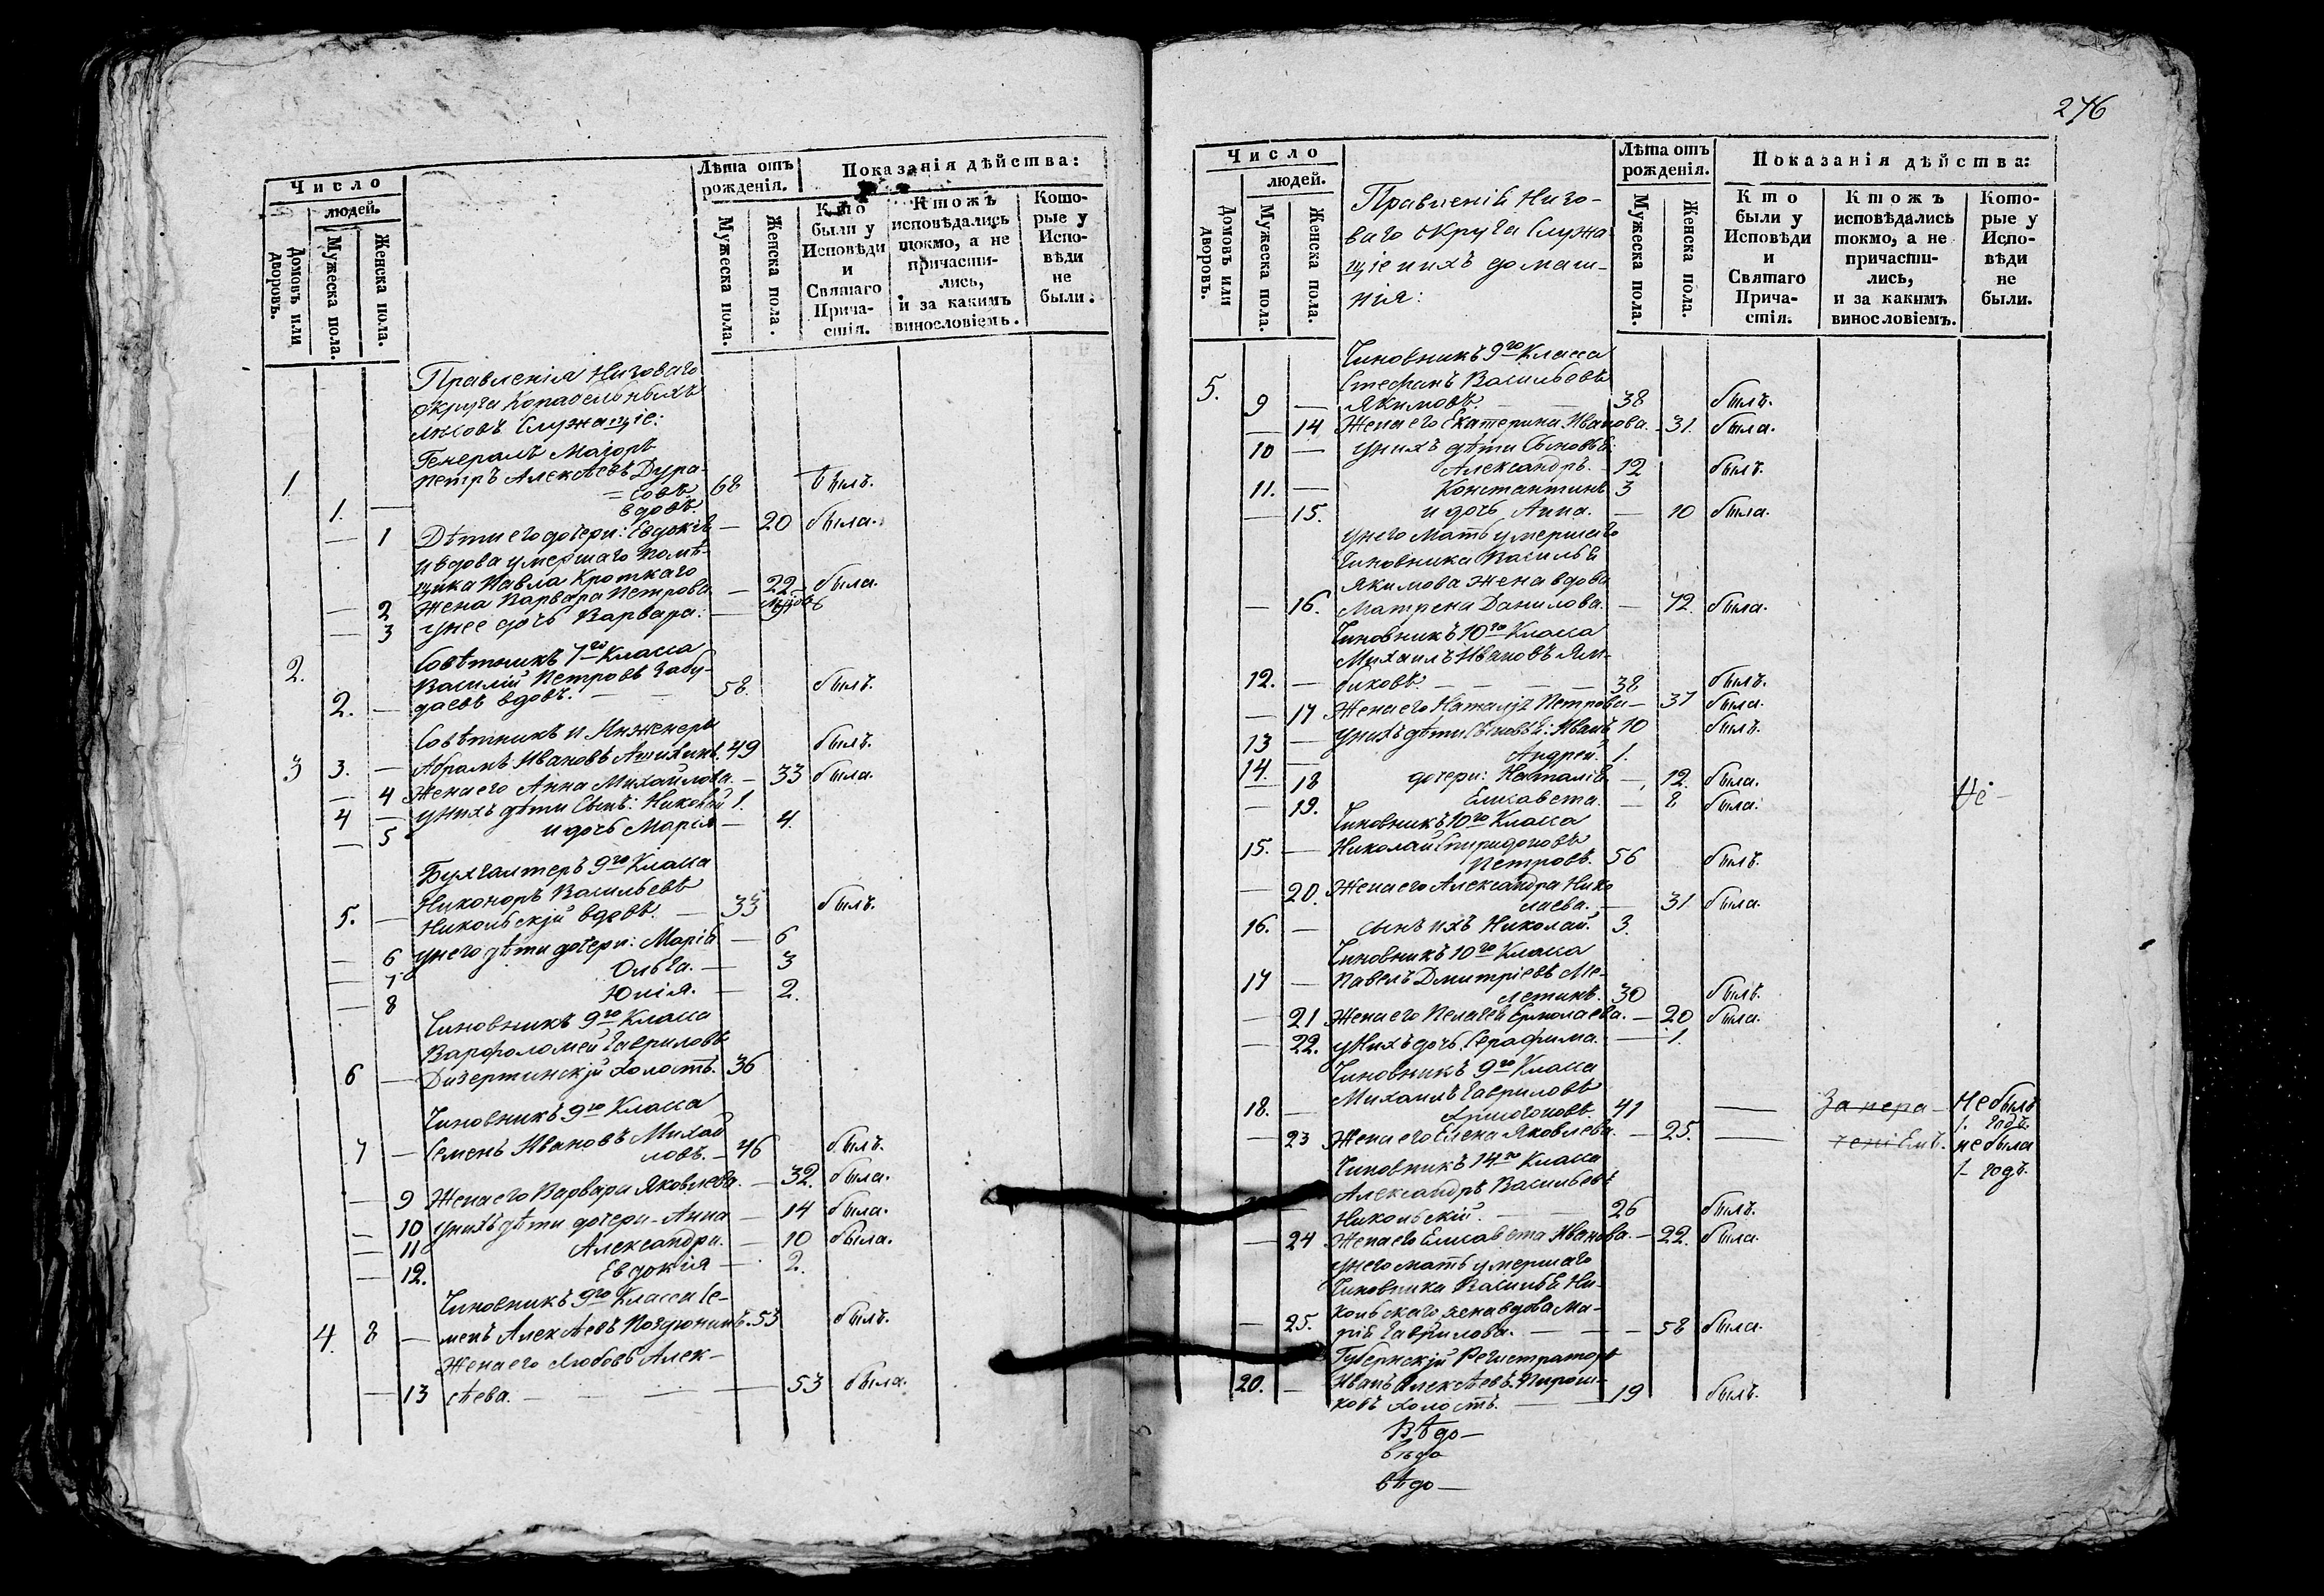 Число
людей.
Домовъ или дворовъ.
Мужеска пола.
Женска пола.
Лѣта отъ рожденія.
Мужеска пола.
Женска пола.
Показанія дѣйства:
Кто были у Исповѣди и Святаго Прича-стія.
Ктожъ исповѣдались токмо, а не причасти-лись, и за какимъ винословіемъ.
Кото-рые у Испо-вѣди не были.
Правленія Низоваго
округа Корабельныхъ
лѣсовъ Служащіе:
Генералъ Маіоръ
1 Петръ Алексѣевъ Дура-
=совъ 68 былъ.
1. — вдовъ.
— 1 Дѣти его дочери: Евдокія — 20 была.
и вдова умершаго помѣ-
щика Павла Кроткаго
— 2 жена Варвара Петрова — 22 была.
— 3 у нее дочь Варвара. — 9
Совѣтникъ 7го Класса
2. Василій Петровъ
2. — вдовъ. — 58. былъ.
Совѣтникъ и Инженеръ
3 3. — Абрамъ Ивановъ 49 былъ.
— 4 Жена его Анна Михайлова. — 33 была.
4 — у нихъ дѣти Сынъ: 1.
— 5 и дочь Марія — 4.
Бухгалтеръ 9го Класса
Никоноръ Васильевъ
5. — Никольскій вдовъ. — 33 былъ.
— 6 у него дѣти дочери: Марія — 6
— 7 Ольга. — 3
— 8 Юлія. — 2.
Чиновникъ 9го Класса
Варфоломей Гавриловъ
6 — холостъ. 36
Чиновникъ 9го Класса
Семенъ Ивановъ Михай
7 — ловъ. — 46 былъ.
— 9 Жена его Варвара Яковлева. — 32. была.
— 10 у нихъ дѣти дочери — Анна — 14 была.
— 11 Александра. — 10 была.
— 12. Евдокія — 2.
Чиновникъ 9го Класса Се-
4. 8 — менъ Алексѣевъ Поздюнинъ. 53 былъ.
Жена его Любовь Алек-
— 13 сѣева. — 53 была.
276
Число
людей.
Домовъ или дворовъ.
Мужеска пола.
Женска пола.
Правленій Низо-
ваго округа Служа
щіе и ихъ домаш-
нія:
Лѣта отъ рожденія.
Мужеска пола.
Женска пола.
Показанія дѣйства:
Кто были у Исповѣди и Святаго Прича-стія.
Ктожъ исповѣдались токмо, а не причасти-лись, и за какимъ винословіемъ.
Кото-рые у Испо-вѣди не были.
Чиновникъ 9го Класса
5. Стефанъ Васильевъ
9 — Якимовъ. 38 былъ.
— 14 Жена его Екатерина Иванова. — 31. была.
10 — у нихъ дѣти Сыновья:
Александръ. — 12 былъ.
11. — Константинъ 3
— 15. и дочь Анна. — 10 была.
у него Мать умершаго
Чиновника Василья
Якимова жена вдова
— 16. Матрена Данилова. — 72. была.
Чиновникъ 10го Класса
Михаилъ Ивановъ Ям-
12. — биковъ. — 38 былъ.
— 17 Жена его Наталія Петрова — 37 была.
13 — у нихъ дѣти Сыновья: Иванъ 10 былъ.
14. — Андрей. 1.
— 18 дочери: Наталія — 12. была.
— 19. Елисавета. — 8 была. Не —
Чиновникъ 10го Класса
15. — Николай Спиридоновъ
Петровъ. 56 былъ.
— 20. Жена его Александра Нико
лаева. — 31 была.
16. — сынъ ихъ Николай. 3.
Чиновникъ 10го Класса
17 — Павелъ Дмитріевъ Ме-
летинъ. 30 былъ.
— 21 Жена его Пелагея Ермолаева. — 20 была.
— 22. у нихъ дочь Серафима. — 1.
Чиновникъ 9го Класса
Михаилъ Гавриловъ
18. — 41 — За нера — Не былъ
1. годъ.
— 23 Жена его Елена Яковлева. — 25. — ченіемъ. не была
1 — годъ.
Чиновникъ 14го Класса
Александръ Васильевъ
— Никольскій. — 26 былъ.
— 24 Жена его Елисавета Иванова. — 22. была.
у него мать умершаго
Чиновника Василья Ни-
кольскаго жена вдова Ма-
— 25. рія Гаврилова. — 58 была.
Губернскій Регистраторъ
20. — Иванъ Алексѣевъ Пирож-
ковъ холостъ. — 19 былъ.
Вѣдо —
вѣдо
вѣдо —